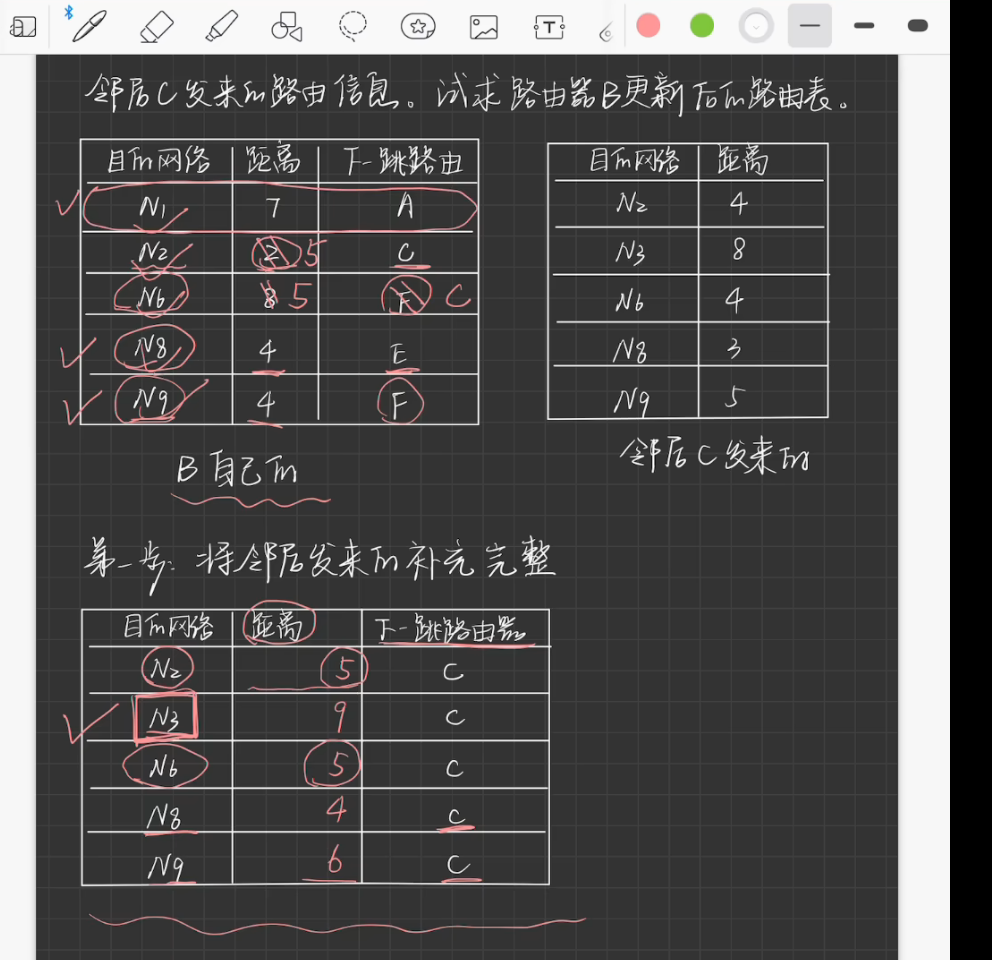 邻居C发来的路由信息。试求路由器B更新后的路由表。
目的网络 距离 下一跳路由
N1 7 A
N2 2 5 C
N6 8 5 F C
N8 4 E
N9 4 F
B自己的
目的网络 距离
N2 4
N3 8
N6 4
N8 3
N9 5
邻居C发来的
第一步:将邻居发来的补充完整
目的网络 距离 下一跳路由器
N2 5 C
N3 9 C
N6 5 C
N8 4 C
N9 6 C